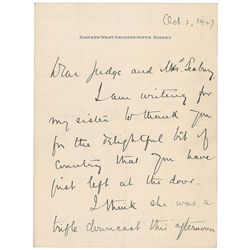 Oct. 2, 1927
SIXTEEN WEST SEVENTY-FIFTH STREET
Dear Judge and Mrs Seabury
I am writing for
my sister to thank you
for the delightful bit of
Country that you have
just left at the door.
I think she was a
trifle downcast this afternoon